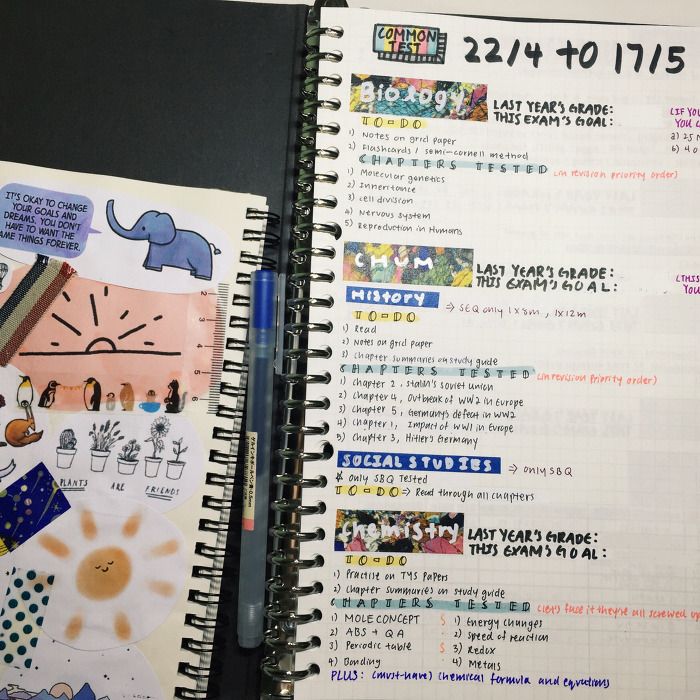 COMMON
TEST
22/4 TO 17/5
Biology
LAST YEAR'S GRADE:
THIS EXAM'S GOAL:
TO-DO
1) Notes on grid paper
2) Flashcards / semi-cornell method
CHAPTERS TESTED (in revision priority order)
1) Molecular genetics
2) Inheritance
3) cell division
4) Nervous system
5) Reproduction in Humans
CHUM
LAST YEAR'S GRADE:
THIS EXAM'S GOAL:
HISTORY → SEQ only 1x8m, 1x12m
TO-DO
1) Read
2) Notes on grid paper
3) Chapter summaries on study guide
CHAPTERS TESTED (in revision priority order)
1) Chapter 2, Stalin's Soviet Union
2) Chapter 4, Outbreak of WW2 in Europe
3) Chapter 5, Germany's defeat in WW2
4) Chapter 1, Impact of WW1 in Europe
5) Chapter 3, Hitler's Germany
SOCIAL STUDIES → only SBQ
* only SBQ Tested
TO-DO → Read through all chapters
Chemistry
LAST YEAR'S GRADE:
THIS EXAM'S GOAL:
TO-DO
1) Practise on TYS Papers
2) Chapter summaries on study guide
CHAPTERS TESTED they're all screwed up
1) MOLE CONCEPT
2) ABS + QA
3) Periodic table
4) Bonding
5 1) Energy changes
2) Speed of reaction
5 3) Redox
4) Metals
PLUS: (must-have) chemical formula and equations
IT'S OKAY TO CHANGE
YOUR GOALS AND
DREAMS. YOU DON'T
HAVE TO WANT THE
SAME THINGS FOREVER.
PLANTS ARE FRIENDS